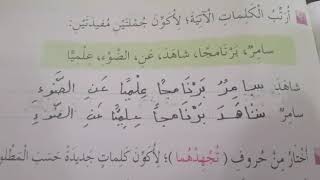 أُرَتِّبُ الْكَلِمَاتِ الْآتِيَةَ؛ لِأُكَوِّنَ جُمْلَتَيْنِ مُفيدَتَيْنِ:
سامِرٌ، بَرْنامَجًا، شاهَدَ، عَنِ، الضَّوْءِ، عِلْمِيًّا
شاهَدَ سامِرٌ بَرْنامَجًا عِلْمِيًّا عَنِ الضَّوْءِ
سامِرٌ شَاهَدَ بَرْنامَجاً عِلْمِيًّا عَنِ الضَّوْءِ
أَخْتارُ مِنْ حُروفِ (تُجْهِدُهُما)؛ لِأُكَوِّنَ كَلِماتٍ جَديدَةً حَسَبَ